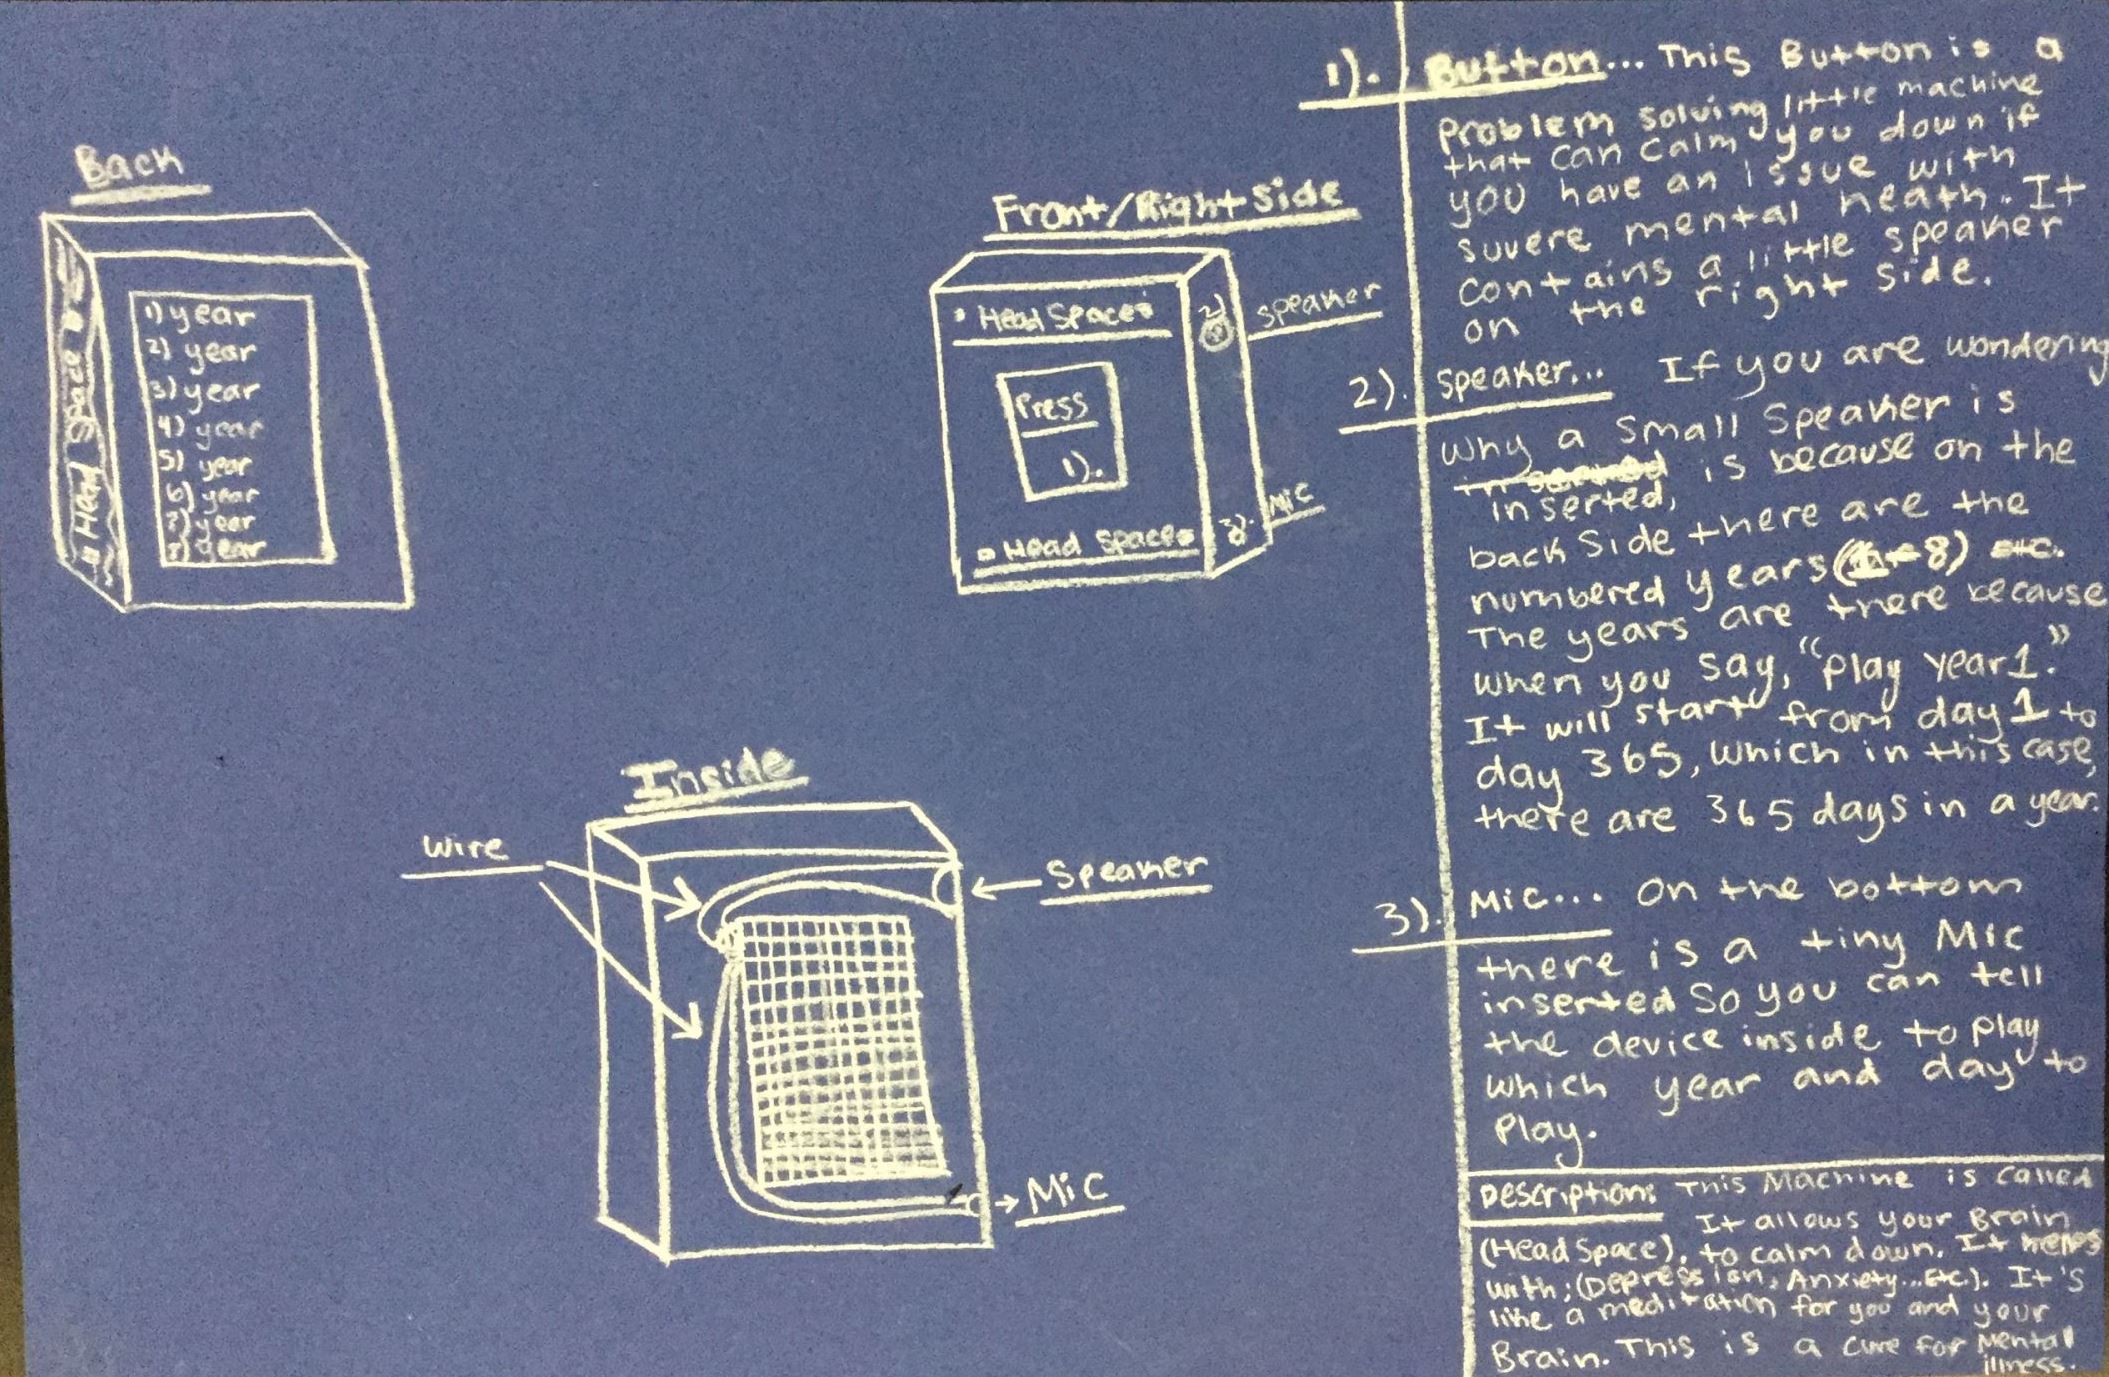 Back
1) year
2) year
3) year
4) year
5) year
6) year
7) year
8) year
Head Space
Front/Right Side
Head Space
Press
1).
Head Space
2)
speaker
3).
Mic
Inside
wire
Speaker
Mic
1). Button... This Button is a
Problem solving little machine
that can calm you down if
you have an issue with
suvere mental heath. It
contains a little speaker
on the right side.
2). Speaker... If you are wondering
why a small Speaker is
inserted, is because on the
back Side there are the
numbered years (1-8) etc.
The years are there because
when you say, "play year 1."
It will start from day 1 to
day 365, which in this case,
there are 365 days in a year.
3). Mic... on the bottom
there is a tiny Mic
inserted So you can tell
the device inside to play
which year and day to
Play.
Description: This Machine is called
(Head Space). It allows your Brain
to calm down. It helps
with; (Depression, Anxiety...Etc.). It's
like a meditation for you and your
Brain. This is a cure for Mental
illness.